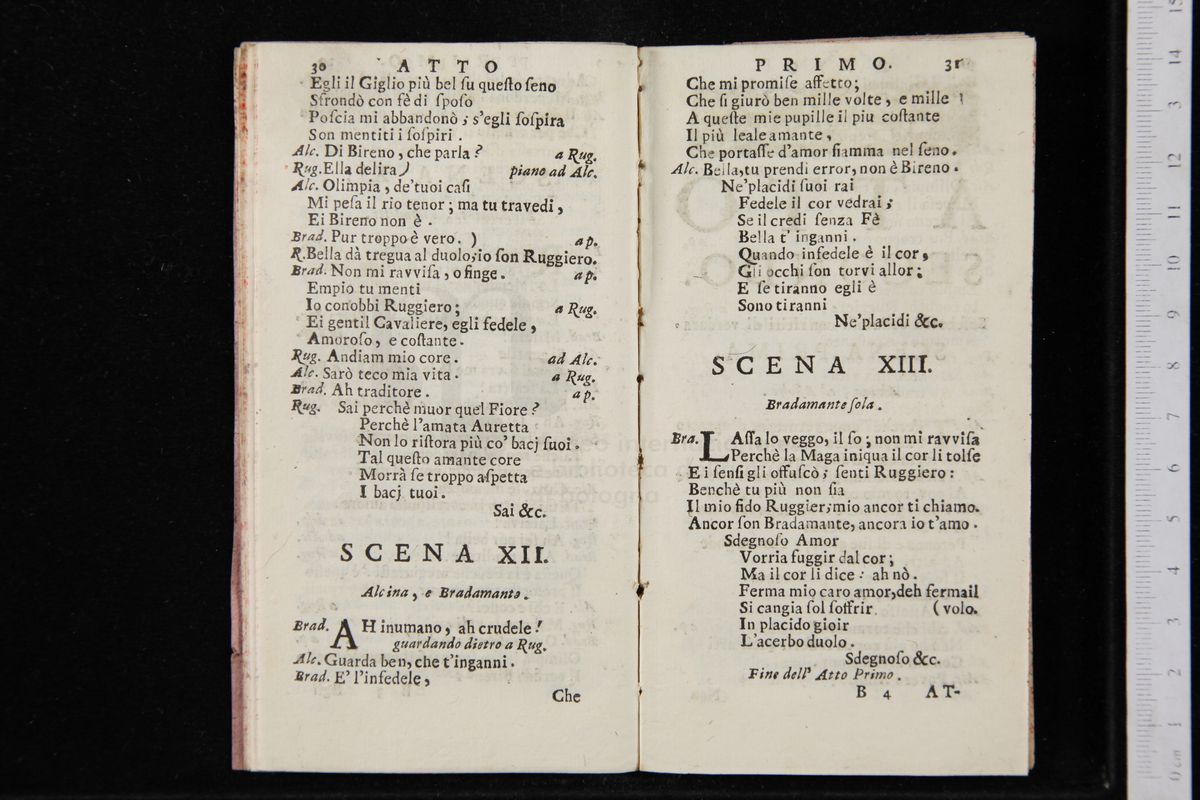 30 ATTO
Egli il Giglio più bel ſu queſto ſeno
Sfrondò con fè di ſpoſo
Poſcia mi abbandonò ; s'egli ſoſpira
Son mentiti i ſoſpiri .
Alc. Di Bireno , che parla ? a Rug.
Rug. Ella delira ) piano ad Alc.
Alc. Olimpia , de'tuoi caſi
Mi peſa il rio tenor ; ma tu travedi ,
Ei Bireno non è .
Brad. Pur troppo è vero. ) ap.
R. Bella dà tregua al duolo,io ſon Ruggiero.
Brad. Non mi ravviſa , o finge . ap.
Empio tu menti
Io conobbi Ruggiero ; a Rug.
Ei gentil Cavaliere, egli fedele ,
Amoroſo, e coſtante .
Rug. Andiam mio core . ad Alc.
Alc. Sarò teco mia vita . a Rug.
Brad. Ah traditore . ap.
Rug. Sai perchè muor quel Fiore ?
Perchè l'amata Auretta
Non lo riſtora più co' bacj ſuoi .
Tal queſto amante core
Morrà ſe troppo aſpetta
I bacj tuoi .
Sai &c.
SCENA XII.
Alcina , e Bradamante .
Brad. AH inumano , ah crudele !
guardando dietro a Rug.
Alc. Guarda ben, che t'inganni .
Brad. E' l'infedele ,
Che
PRIMO. 31
Che mi promiſe affetto ;
Che ſi giurò ben mille volte , e mille
A queſte mie pupille il piu coſtante
Il più leale amante ,
Che portaſſe d'amor fiamma nel ſeno .
Alc. Bella,tu prendi error, non è Bireno .
Ne'placidi ſuoi rai
Fedele il cor vedrai ;
Se il credi ſenza Fè
Bella t' inganni .
Quando infedele è il cor ,
Gli occhi ſon torvi allor ;
E ſe tiranno egli è
Sono tiranni
Ne'placidi &c.
SCENA XIII.
Bradamante ſola .
Bra. LAſſa lo veggo, il ſo ; non mi ravviſa
Perchè la Maga iniqua il cor li tolſe
E i ſenſi gli offuſcò ; ſenti Ruggiero :
Benchè tu più non ſia
Il mio fido Ruggier,mio ancor ti chiamo.
Ancor ſon Bradamante, ancora io t'amo .
Sdegnoſo Amor
Vorria fuggir dal cor ;
Ma il cor li dice : ah nò .
Ferma mio caro amor,deh fermail
Si cangia ſol ſoffrir ( volo.
In placido gioir
L'acerbo duolo .
Sdegnoſo &c.
Fine dell' Atto Primo .
B 4 AT-